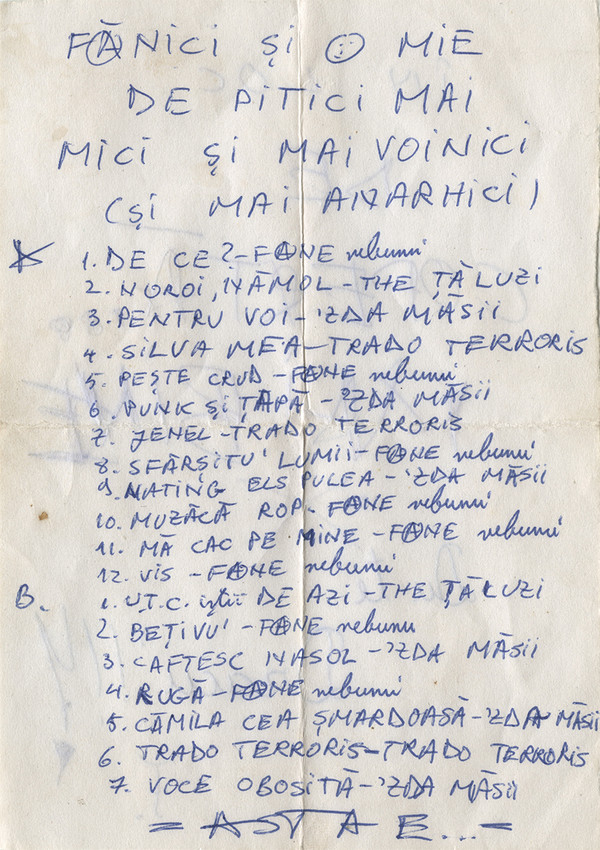 FĂNICI ŞI O MIE
DE PITICI MAI
MICI ŞI MAI VOINICI
(ŞI MAI ANARHICI)
A 1. DE CE? - FANE nebunu'
2. NOROI, NĂMOL - THE ŢĂLUZI
3. PENTRU VOI - 'ZDA MĂSII
4. SILVA MEA - TRADO TERRORIS
5. PEŞTE CRUD - FANE nebunu'
6. PUNK ŞI ŢĂPĂ - 'ZDA MĂSII
7. JENEL - TRADO TERRORIS
8. SFÂRŞITU' LUMII - FANE nebunu'
9. NATING ELS PULEA - 'ZDA MĂSII
10. MUZĂCĂ ROP - FANE nebunu'
11. MĂ CAC PE MINE - FANE nebunu'
12. VIS - FANE nebunu'
B. 1. U.T.C. iştii DE AZI - THE ŢĂLUZI
2. BEŢIVU' - FANE nebunu
3. CAFTESC NASOL - 'ZDA MĂSII
4. RUGĂ - FANE nebunu'
5. CĂMILA CEA ŞMARDOASĂ - 'ZDA MĂSII
6. TRADO TERRORIS - TRADO TERRORIS
7. VOCE OBOSITĂ - 'ZDA MĂSII
= ASTA E... =